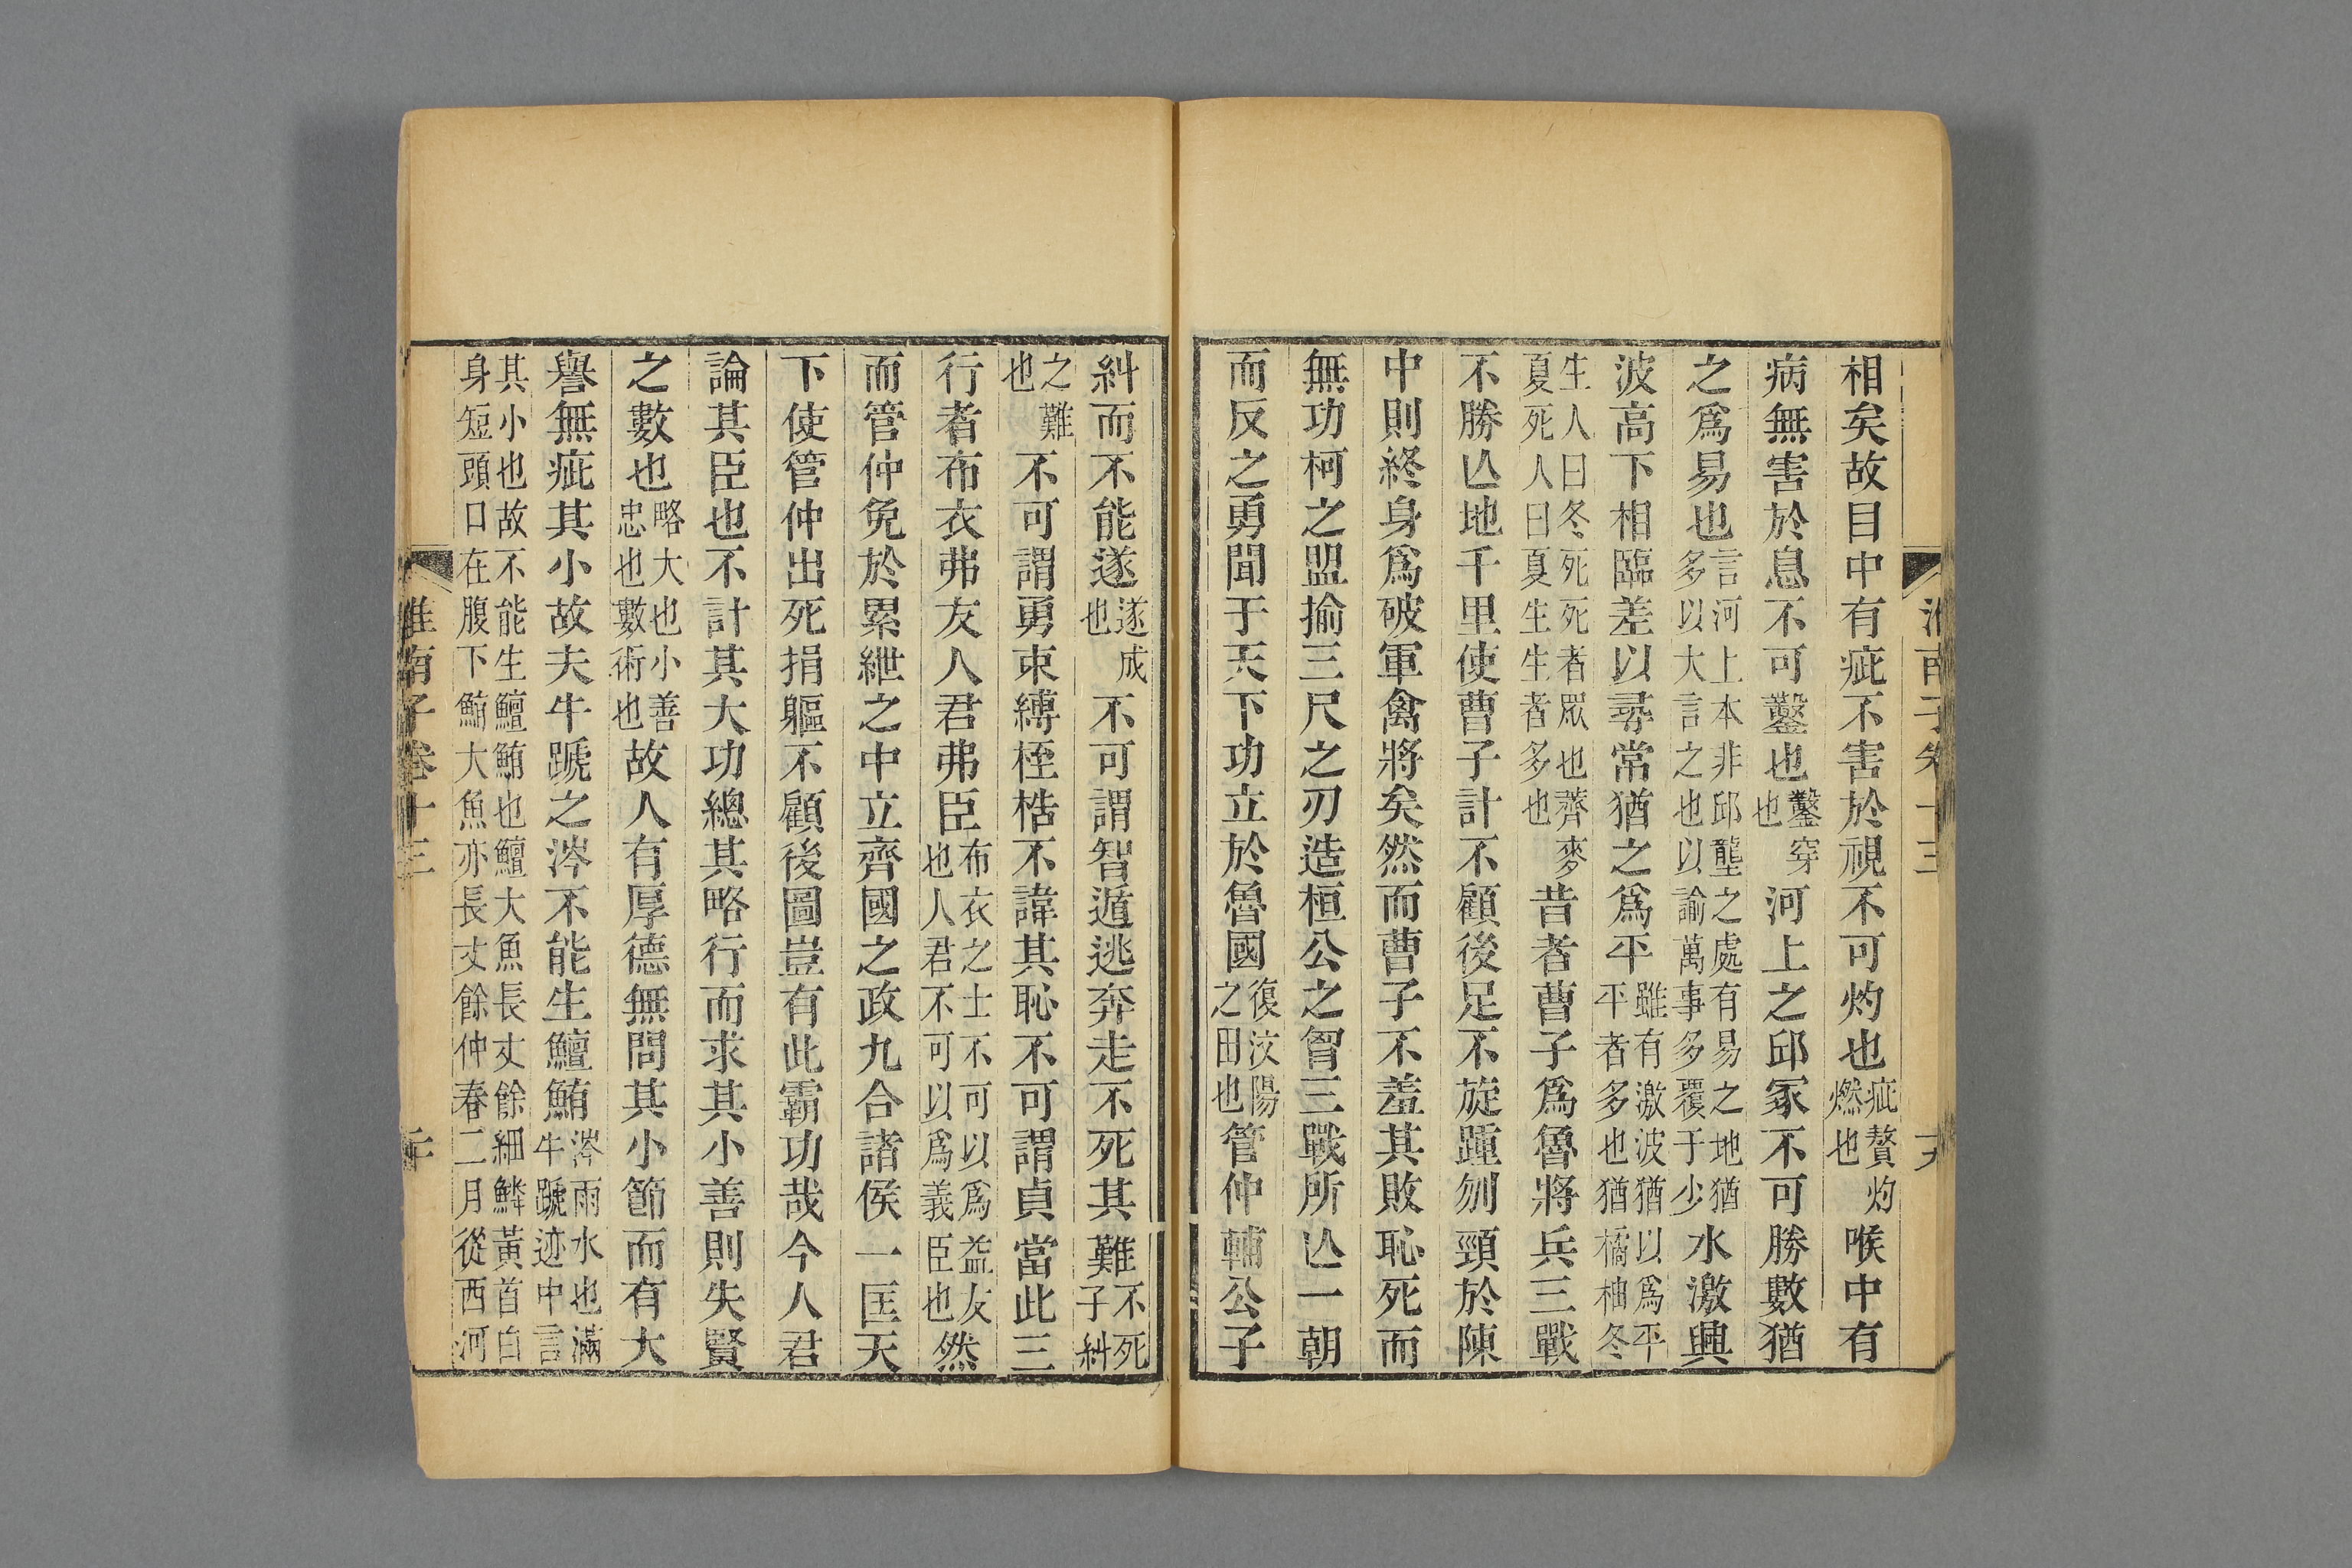 淮南子卷十三
相矣故目中有疵不害於視不可灼也疵贅灼燃也喉中有
病無害於息不可鑿也鑿穿也河上之邱冢不可勝數猶
之爲易也言河上本非邱壟之處有易之地猶多以大言之也以諭萬事多覆于少水激興
波高下相臨差以尋常猶之爲平雖有激波猶以爲平平者多也猶橘柚冬
生人曰冬死死者眾也薺麥夏死人曰夏生生者多也昔者曹子爲魯將兵三戰
不勝亾地千里使曹子計不顧後足不旋踵刎頸於陳
中則終身爲破軍禽將矣然而曹子不羞其敗恥死而
無功柯之盟揄三尺之刃造桓公之智三戰所亾一朝
而反之勇聞于天下功立於魯國復汶陽之田也管仲輔公子
糾而不能遂遂成也不可謂智遁逃奔走不死其難不死子糾
之難也不可謂勇束縛桎梏不諱其恥不可謂貞當此三
行者布衣弗友人君弗臣布衣之士不可以爲益友也人君不可以爲義臣也然
而管仲免於累紲之中立齊國之政九合諸侯一匡天
下使管仲出死捐軀不顧後圖豈有此霸功哉今人君
論其臣也不計其大功總其略行而求其小善則失賢
之數也略大也小善忠也數術也故人有厚德無問其小節而有大
譽無疵其小故夫牛蹏之涔不能生鱣鮪涔雨水也滿牛蹏迹中言
其小也故不能生鱣鮪也鱣大魚長丈餘細鱗黃首白身短頭口在腹下鮪大魚亦長丈餘仲春二月從西河
淮南子卷十三